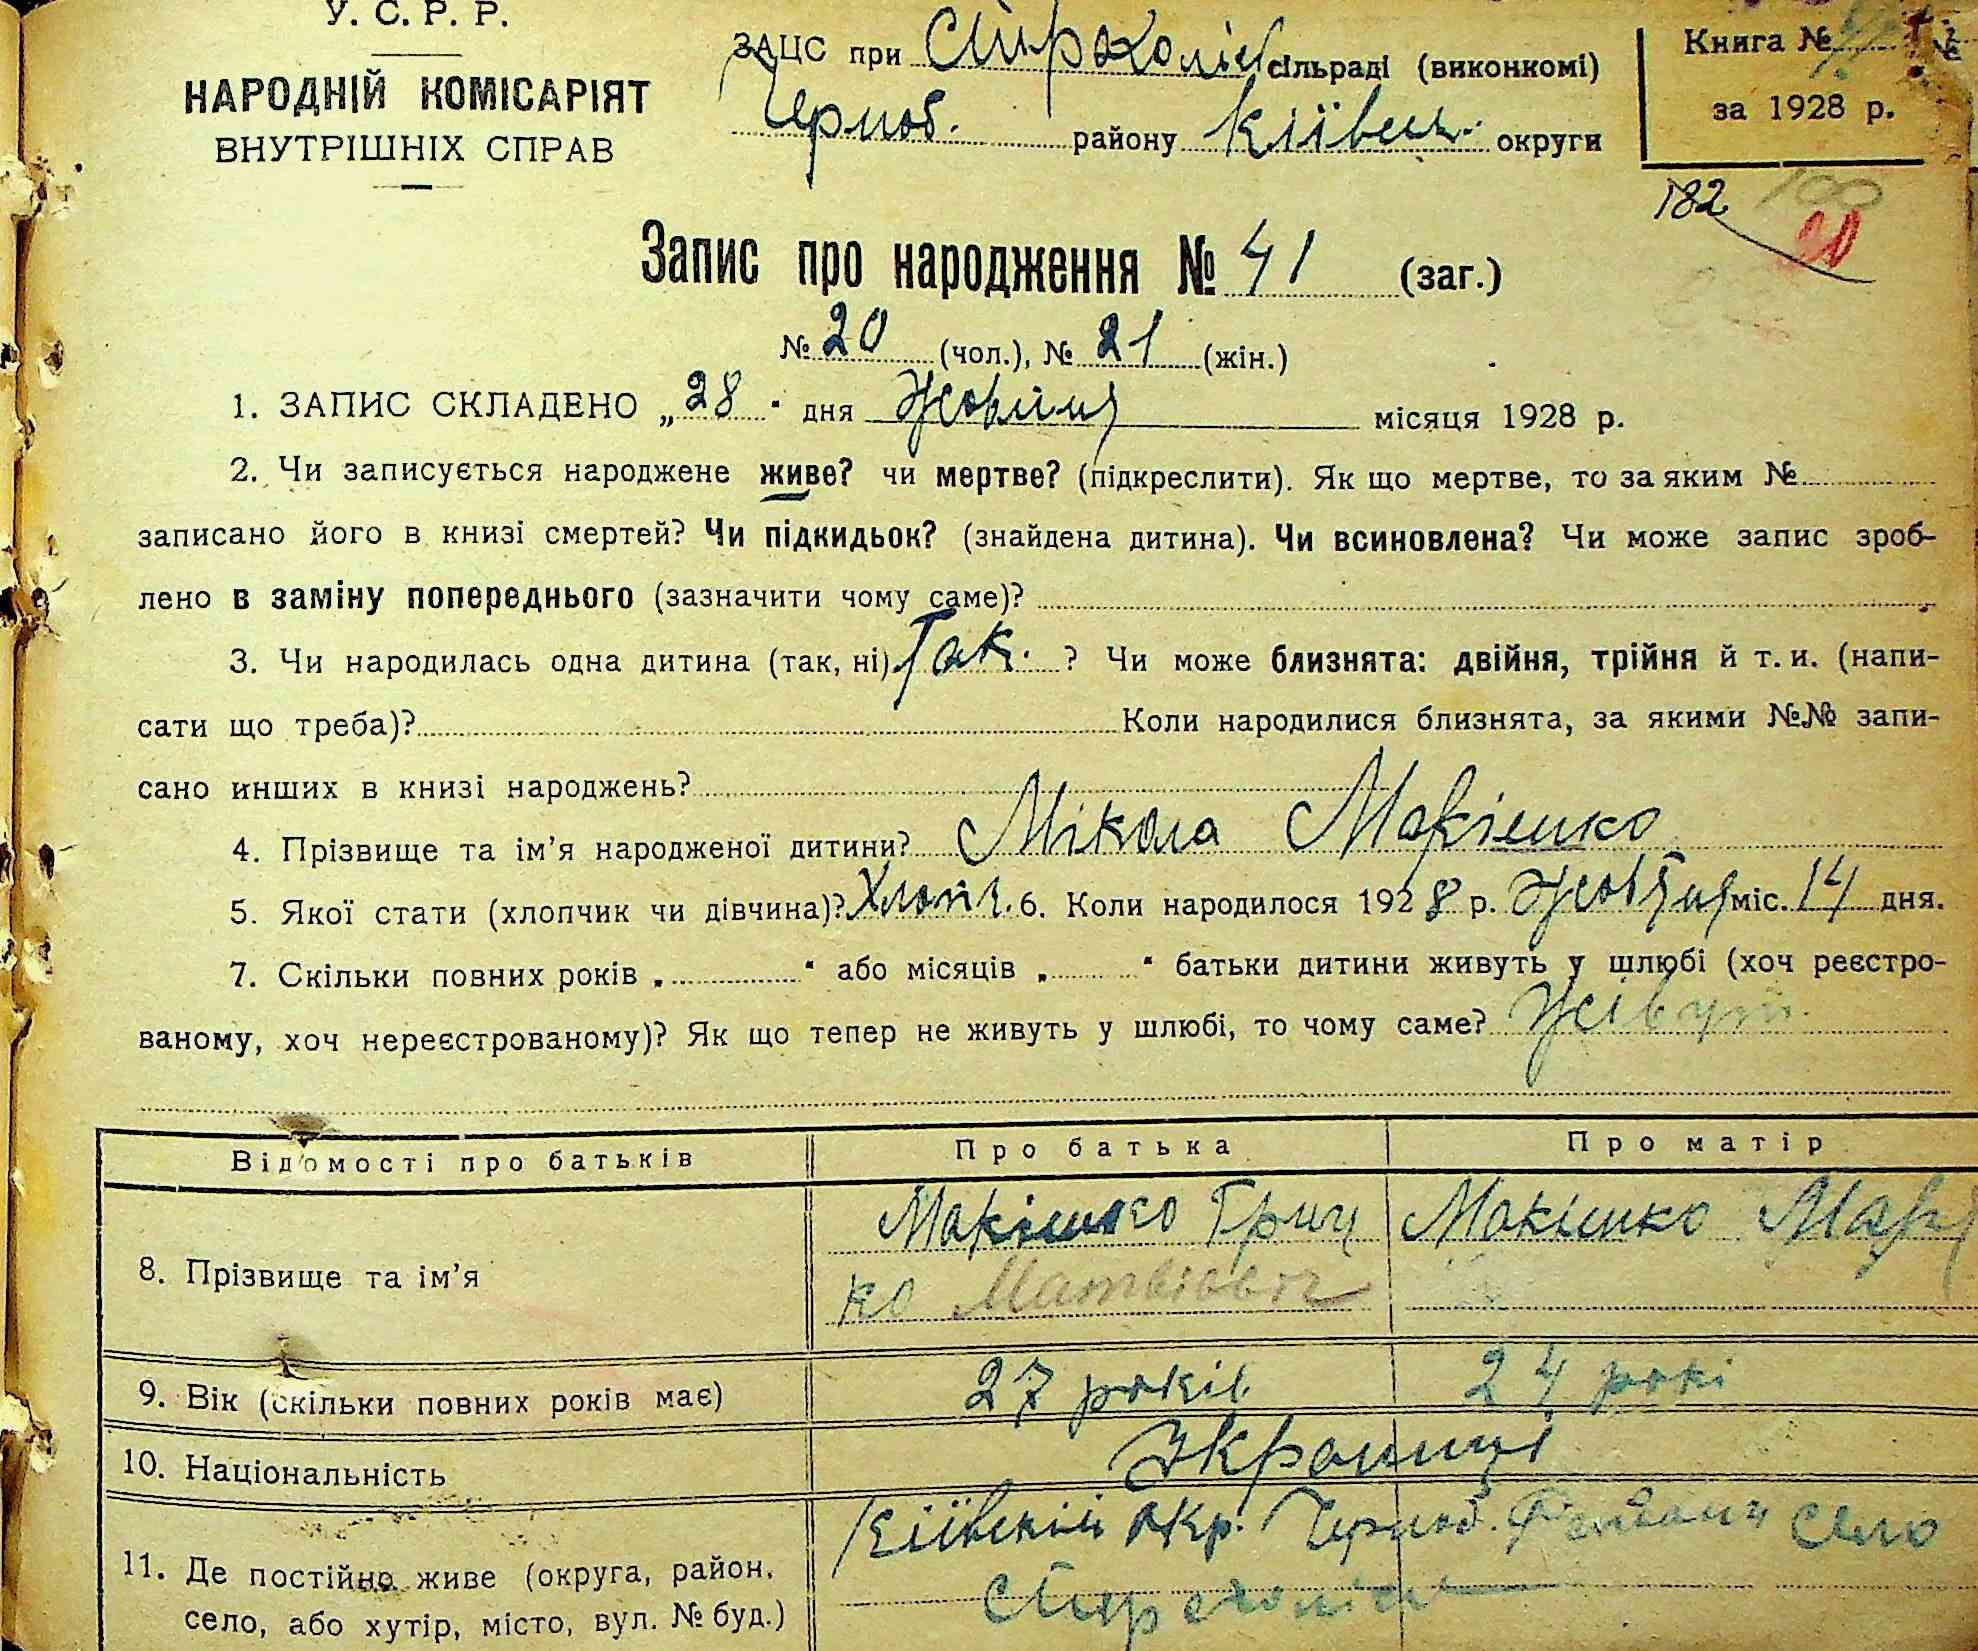 У. С. Р. Р.
НАРОДНІЙ КОМІСАРІЯТ
ВНУТРІШНІХ СПРАВ
ЗАЦС при сільраді (виконкомі)
Черноб. району Київськ. округи
Книга №
за 1928 р.
182 100
20
Запис про народження № 41 (заг.)
№ 20 (чол.), № 21 (жін.)
1. ЗАПИС СКЛАДЕНО „28" дня Жовтня місяця 1928 р.
2. Чи записується народжене живе? чи мертве? (підкреслити). Як що мертве, то за яким №
записано його в книзі смертей? Чи підкидьок? (знайдена дитина). Чи всиновлена? Чи може запис зроб-
лено в заміну попереднього (зазначити чому саме)?
3. Чи народилась одна дитина (так, ні) Так. ? Чи може близнята: двійня, трійня й т. и. (напи-
сати що треба)? Коли народилися близнята, за якими №№ запи-
сано инших в книзі народжень?
4. Прізвище та ім'я народженої дитини? Мікола Макієнко
5. Якої стати (хлопчик чи дівчина)? Хлопч. 6. Коли народилося 1928 р. Жовтня міс. 14 дня.
7. Скільки повних років „ " або місяців „ " батьки дитини живуть у шлюбі (хоч реєстро-
ваному, хоч нереєстрованому)? Як що тепер не живуть у шлюбі, то чому саме? Живут.
Відомості про батьків Про батька Про матір
8. Прізвище та ім'я Грицко Матвієвич
9. Вік (скільки повних років має) 27 років 24 рокі
10. Національність Украинці
11. Де постійно живе (округа, район, село, або хутір, місто, вул. № буд.) окр. Черноб. село